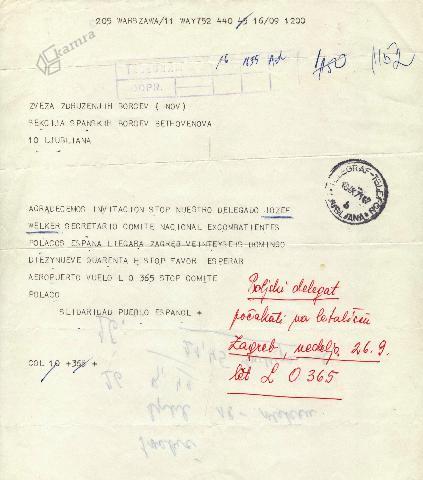 kamra
205 WARSZAWA/11 WAY752 440 45 16/09 1200
1180 1152
ZVEZA ZDRUZENJIH BORCEV ( NOV)
SEKCIJA SPANSKIH BORCEV BETHOVENOVA
10 LJUBLJANA
AGRADECEMOS INVITACION STOP NUESTRO DELEGADO JOZEF
WELKER SECRETARIO COMITE NACIONAL EXCOMBATIENTES
POLACOS ESPANA LLEGARA ZAGREB VEINTEYSEIS DOMINGO
DIEZYNUEVE CUARENTA H STOP FAVOR ESPERAR
AEROPUERTO VUELO L O 365 STOP COMITE
POLACO
SLIDARIDAD PUEBLO ESPANOL +
COL 10 +365 +
Poljski delegat
počakati na letališču
Zagreb, nedelja 26.9.
let L O 365